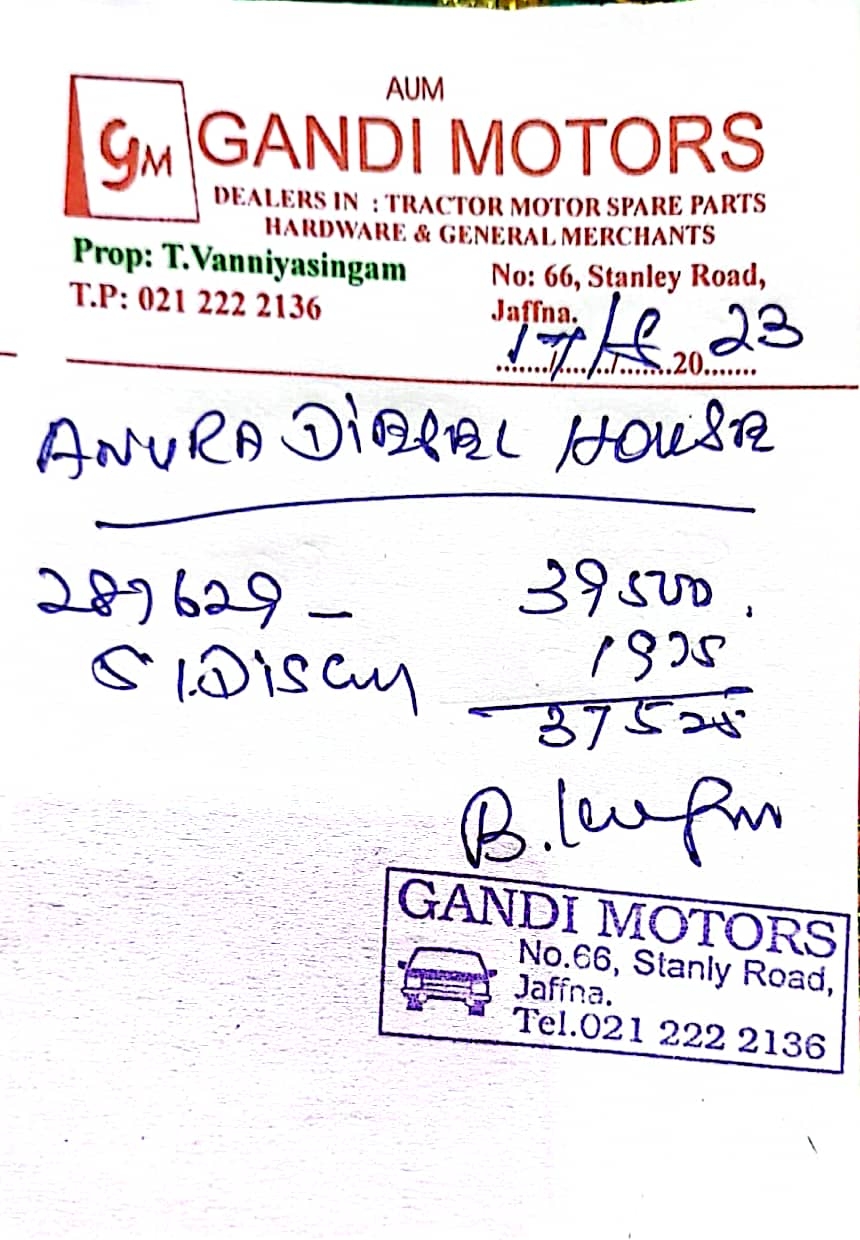 AUM
GM GANDI MOTORS
DEALERS IN : TRACTOR MOTOR SPARE PARTS
HARDWARE & GENERAL MERCHANTS
Prop: T.Vanniyasingam
T.P: 021 222 2136
No: 66, Stanley Road,
Jaffna.
17/ 2023
ANURA DIESEL HOUSE
287629 – 39500.
5%. 1975
37525
GANDI MOTORS
No.66, Stanly Road,
Jaffna.
Tel.021 222 2136